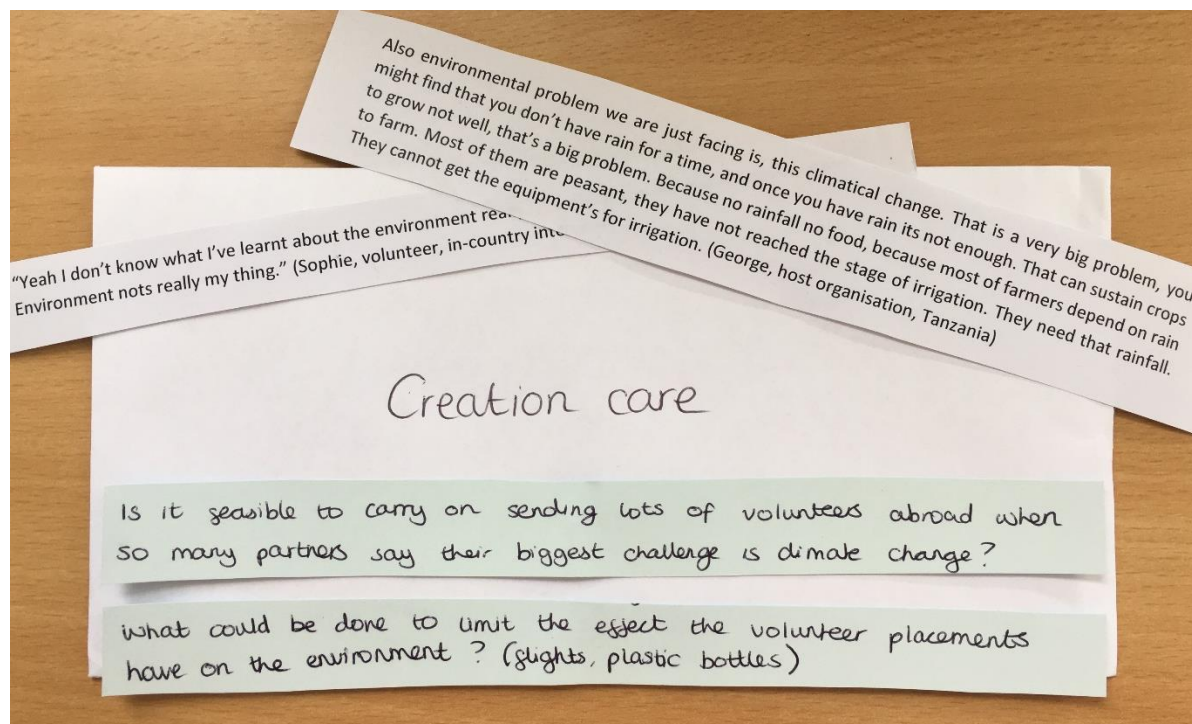 Also environmental problem we are just facing is, this climatical change. That is a very big problem, you
might find that you don't have rain for a time, and once you have rain its not enough. That can sustain crops
to grow not well, that's a big problem. Because no rainfall no food, because most of farmers depend on rain
to farm. Most of them are peasant, they have not reached the stage of irrigation. They need that rainfall.
They cannot get the equipment's for irrigation. (George, host organisation, Tanzania)
"Yeah I don't know what I've learnt about the environment
Environment nots really my thing." (Sophie, volunteer, in-country
Creation care
Is it feasible to carry on sending lots of volunteers abroad when
so many partners say their biggest challenge is climate change?
What could be done to limit the effect the volunteer placements
have on the environment? (flights, plastic bottles)